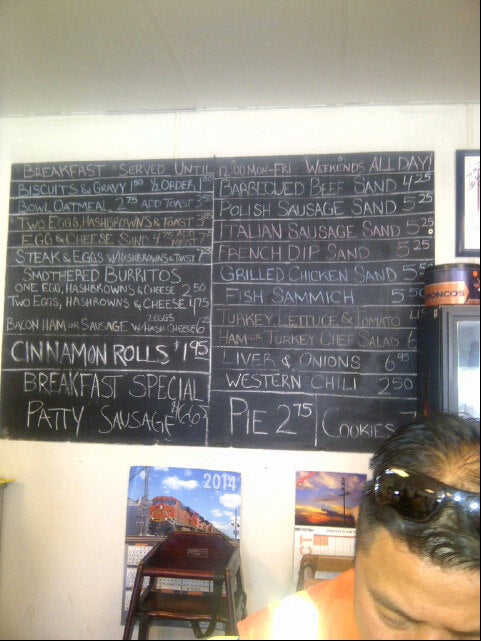 BREAKFAST SERVED UNTIL 12:00 MON-FRI WEEKENDS ALL DAY!
BISCUITS & GRAVY 1/2 ORDER
BOWL OATMEAL 2.75 ADD TOAST
TWO EGGS, HASHBROWNS & TOAST
EGG & CHEESE SAND ADD MEAT
STEAK & EGGS W/HASHBROWNS & TOAST
SMOTHERED BURRITOS
ONE EGG, HASHBROWNS & CHEESE 2.50
TWO EGGS, HASHROWNS & CHEESE 4.75
2 EGGS
BACON HAM OR SAUSAGE W/HASH CHEESE
CINNAMON ROLLS $1.95
BREAKFAST SPECIAL
PATTY SAUSAGE
BARBEQUED BEEF SAND 4.25
POLISH SAUSAGE SAND 5.25
ITALIAN SAUSAGE SAND 5.25
FRENCH DIP SAND 5.25
GRILLED CHICKEN SAND
FISH SAMMICH
TURKEY, LETTUCE & TOMATO
HAM OR TURKEY CHEF SALAD
LIVER & ONIONS 6.95
WESTERN CHILI 2.50
PIE 2.75
COOKIES
BRONCOS
2014